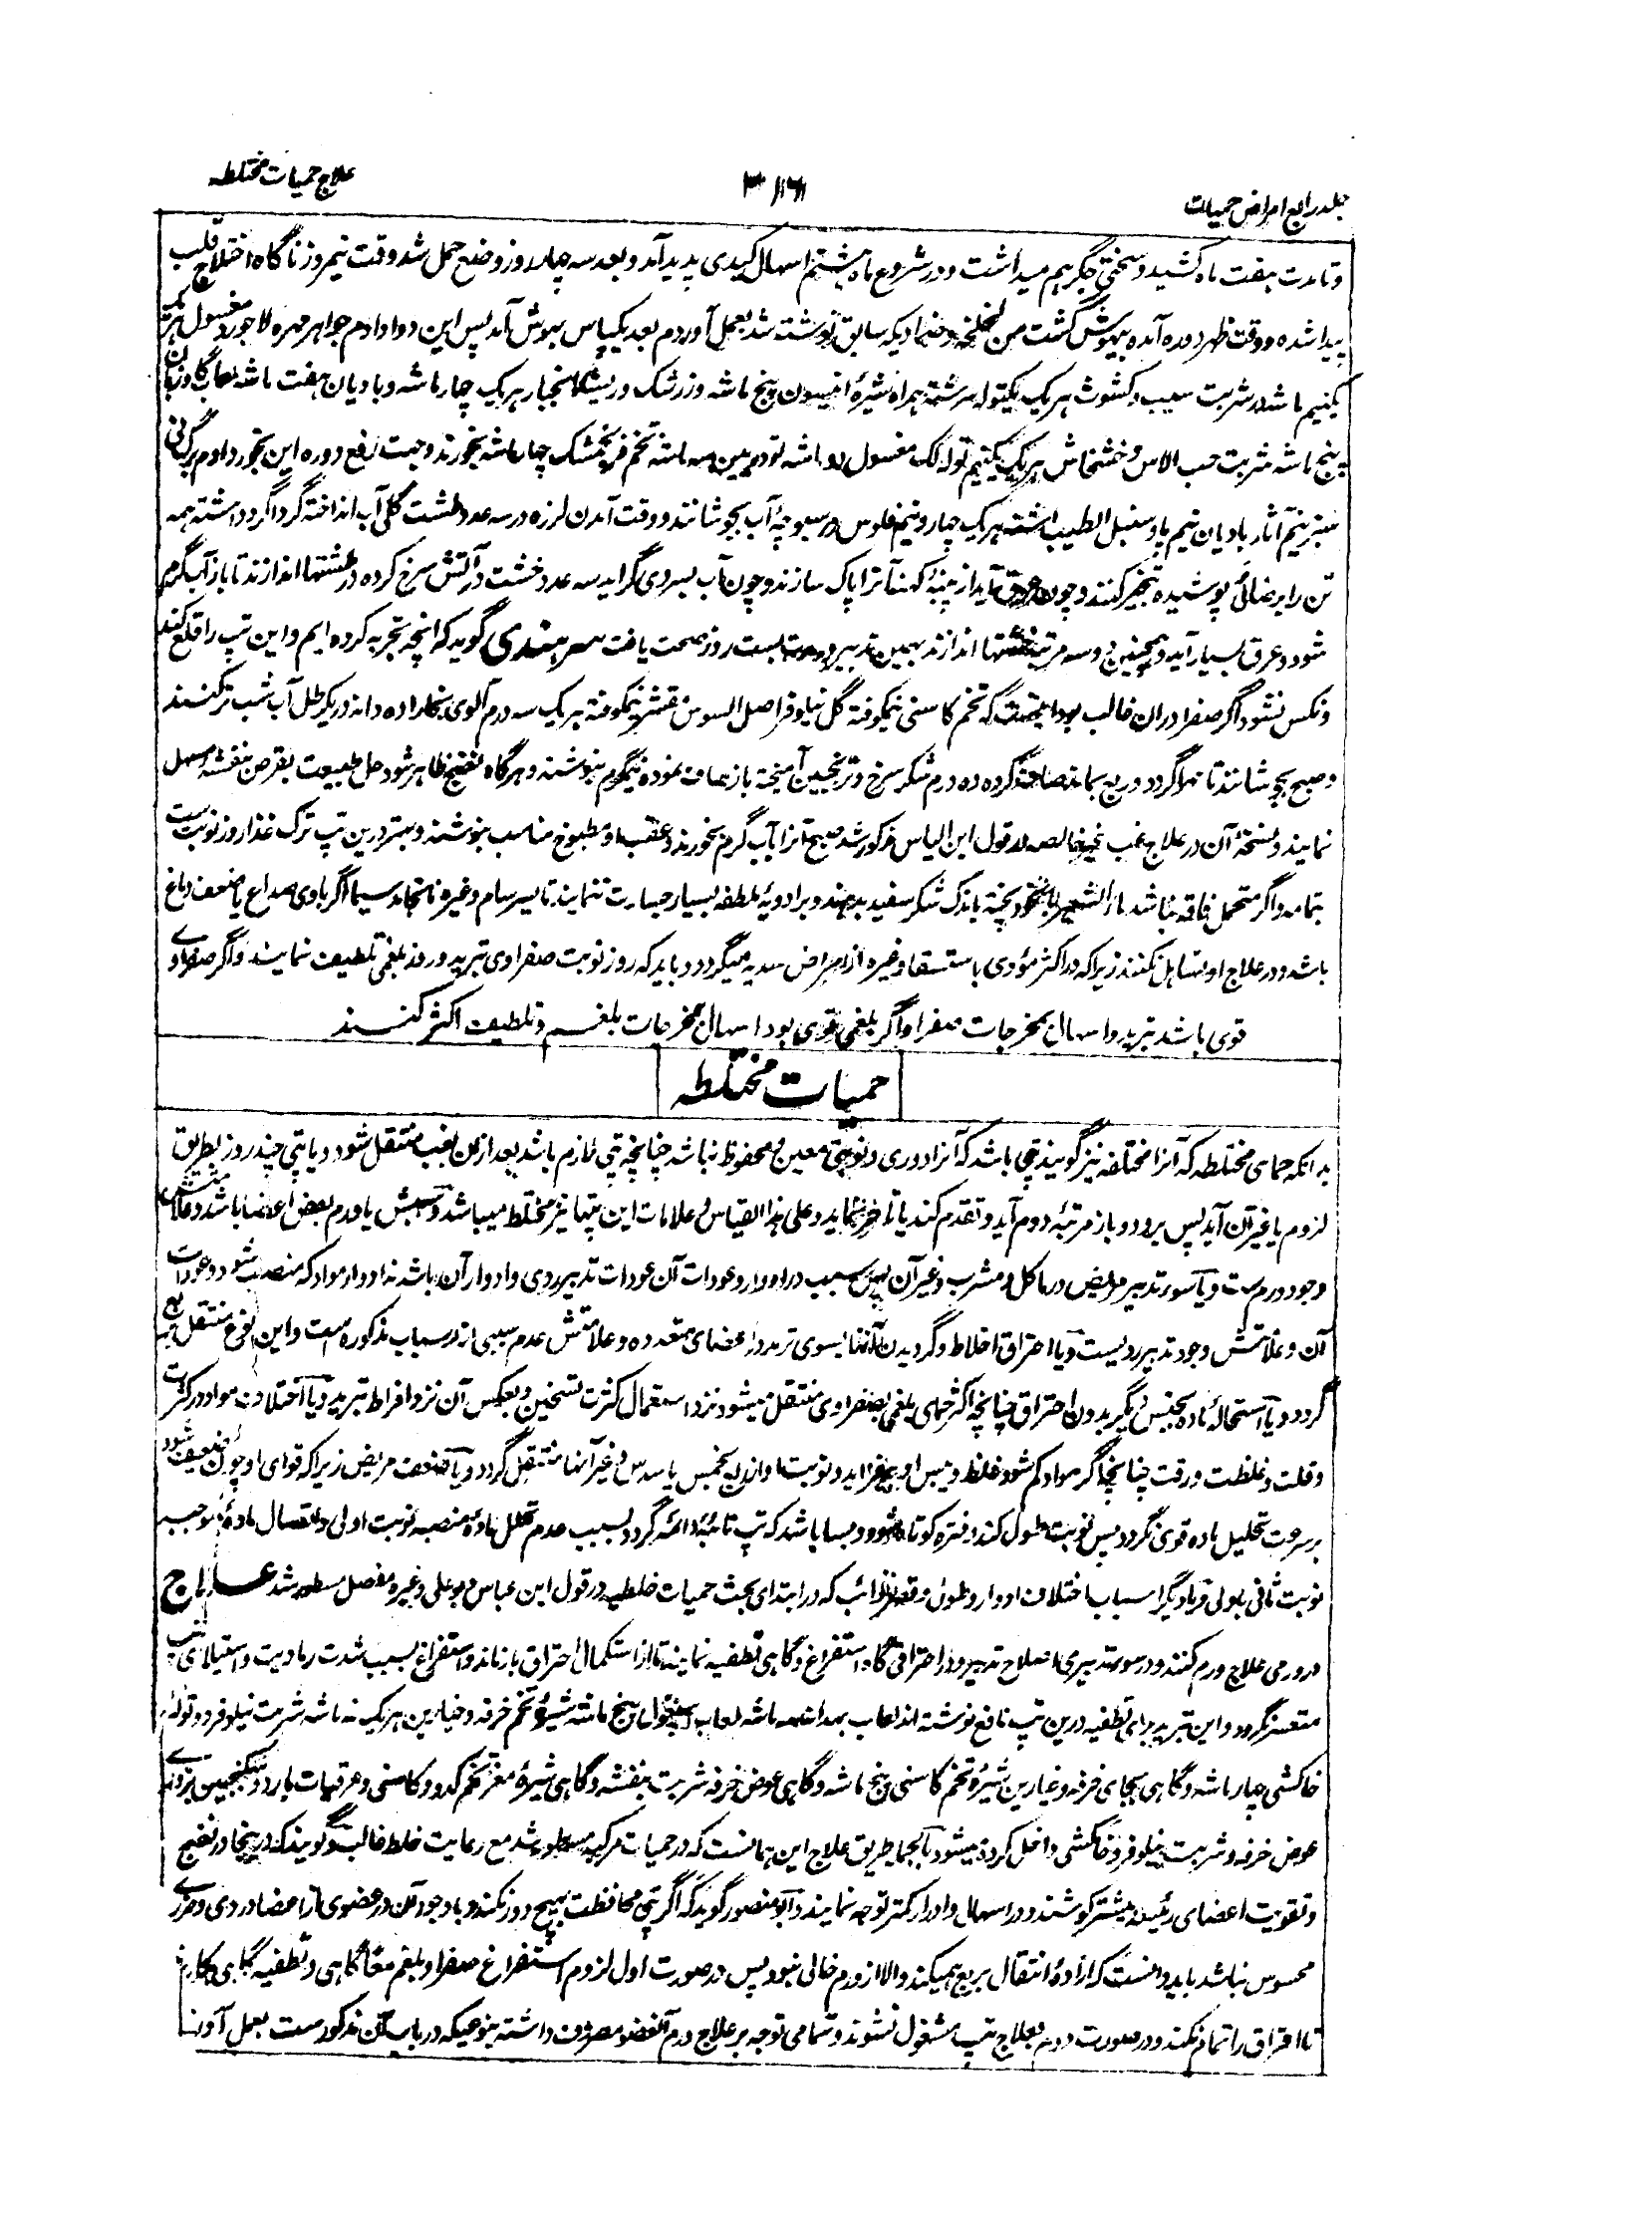 جلد رابع امراض حمیات
علاج حمیات مختلطه
و تا مدت هفت ماه کشید و سختی جگر هم میداشت و در شروع ماه هشتم اسهال کبدی پدید آمد و بعد سه چهار روز وضع حمل شد وقت نیمروز ناگاه اختلاج قلب
پیدا شده و وقت ظهر دوره آمده بیهوش گشت من لخلخه و ضمادیکه سابق نوشته شد بعمل آوردم بعد یکپاس بهوش آمد پس این دوا دادم جواهر مهره لاجورد مغسول هر یک
یکنیم ماشه در شربت سیب و کشوث هر یک یکتوله سرشته همراه شیرۀ انیسون پنج ماشه و زرشک و ریشۀ انجبار هر یک چار ماشه و بادیان هفت ماشه لعاب گاوزبان
پنج ماشه شربت حب الاس و خشخاش هر یک یکنیم توله لک مغسول دو ماشه تودریین سه ماشه تخم فرنجمشک چهار ماشه بخورند و جهت رفع دوره این بخور دادم برگ نی
سبز نیم آثار بادیان نیم پاو سنبل الطیب اشنه هر یک چار و نیم فلوس در سبوچۀ آب بجوشانند و وقت آمدن لرزه در سه عدد طشت گلی آب انداخته گرداگرد داشته همه
تن را برضائی پوشیده تبخیر کنند و چون عرق آید از پنبۀ کهنه آنرا پاک سازند و چون آب بسردی گراید سه عدد خشت در آتش سرخ کرده در طشتها اندازند تا باز آب گرم
شود و عرق بسیار آید و همچنین دو سه مرتبه خشتها اندازند بهمین تدبیر در مدت بست روز صحت یافت سرهندی گوید که انچه تجربه کرده ایم و این تپ را قلع کند
و نکس نشود اگر صفرا دران غالب بود اینست که تخم کاسنی نیمکوفته گل نیلوفر اصل السوس مقشر نیمکوفته هر یک سه درم آلوی بخارا ده دانه در یکرطل آب شب تر کنند
و صبح بجوشانند تا مهرا گردد و ربع بماند صاف کرده ده درم شکر سرخ و ترنجبین آمیخته باز صاف نموده نیمگرم بنوشند و هرگاه نضج ظاهر شود حل طبیعت بقرص بنفشه مسهل
نمایند و نسخۀ آن در علاج غب غیر خالصه در قول ابن الیاس مذکور شد صبح آنرا بآب گرم بخورند و عقب او مطبوخ مناسب بنوشند و بهتر درین تپ ترک غذا روز نوبت ست
بتمامه و اگر متحمل فاقه نباشد ماء الشعیر با نخود پخته باندک شکر سفید بدهند و بر ادویۀ ملطفه بسیار جسارت ننمایند تا بسرسام وغیره نانجامد سیما اگر باوی صداع یا ضعف دماغ
باشد و در علاج او تساهل نکنند زیرا که در اکثر مؤدی باستسقا وغیره از امراض سدیه میگردد و باید که روز نوبت صفراوی تبرید و روز بلغمی تلطیف نمایند و اگر صفراوے
قوی باشد تبرید و اسهال بمخرجات صفرا و اگر بلغمی قوی بود اسهال بمخرجات بلغم و تلطیف اکثر کنند
حمیات مختلطه
بدانکه حمای مختلطه که آنرا مختلفه نیز گویند تپی باشد که آنرا دوری و نوبتی معین و محفوظ نباشد چنانچه تپی لازم باشد بعد ازان بغب منتقل شود و یا تپی چند روز بطریق
لزوم یا غیر آن آید پس برود و باز مرتبۀ دوم آید و تقدم کند یا تاخر نماید و علی هذا القیاس و علامات این تپها نیز مختلط میباشد و سببش یا ورم بعض اعضا باشد و علامتش
وجود ورم ست و یا سوء تدبیر مریض در ماکل و مشرب وغیر آن پس سبب در ادوار و عودات آن عودات تدبیر ردی و ادوار آن باشد نه ادوار مواد که منصب شود و عودات
آن و علامتش وجود تدبیر ردیست و یا احتراق اخلاط و گردیدن آنها بسوی تر مد در اعضای متعدده و علامتش عدم سببی از اسباب مذکوره ست و این نوع منتقل بربع
گردد و یا استحالۀ ماده بجنس دیگر بدون احتراق چنانچه اکثر حمای بلغمی بصفراوی منتقل میشود نزد استعمال کثرت تسخین و بعکس آن نزد افراط تبرید و یا اختلاف مواد در کثرت
و قلت و غلظت و رقت چنانچه اگر مواد کم شود غلظ و یبس او بیفزاید و نوبت او از ربع بخمس یا سدس و غیر آنها منتقل گردد و یا ضعف مریض زیرا که قوای او چون ضعیف شود
بر سرعت تحلیل ماده قوی نگردد پس نوبت طول کند و فتره کوتاه شود و بسا باشد که تپ نائبه دائمه گردد بسبب عدم تحلل مادۀ منصبه نوبت اولی و اتصال مادۀ موجب
نوبت ثانی باولی و یا دیگر اسباب اختلاف ادوار و طول و قصر نوائب که در ابتدای بحث حمیات خلطیه در قول ابن عباس و بوعلی وغیره مفصل مسطور شد علاج
در ورمی علاج ورم کنند و در سوء تدبیری اصلاح تدبیر و در احتراقی گاه استفراغ و گاهی تطفیه نمایند تا از استکمال احتراق باز ماند و استفراغ بسبب شدت رمادیت و استیلای یبس
متعسر نگردد و این تبرید برای تطفیه درین تپ نافع نوشته اند لعاب بهدانه سه ماشه لعاب اسپغول پنج ماشه شیرۀ تخم خرفه و خیارین هر یک نه ماشه شربت نیلوفر دو توله
خاکشی چار ماشه و گاهی بجای خرفه و خیارین شیرۀ تخم کاسنی پنج ماشه و گاهی عوض خرفه شربت بنفشه و گاهی شیرۀ مغز تخم کدو و کاسنی و عرقیات بارد و سکنجبین بزورے
عوض خرفه و شربت نیلوفر و خاکشی داخل کرده میشود بالجمله طریق علاج این همانست که در حمیات مرکبه مسطور شد مع رعایت خلط غالب و گویند که درینجا در نضج
و تقویت اعضای رئیسه بیشتر کوشند و در اسهال و ادرار کمتر توجه نمایند و ابو منصور گوید که اگر تپی محافظت بهیچ دور نکند و با وجود آن در عضوی از اعضا دردی و ضررے
محسوس نباشد باید دانست که ارادۀ انتقال بربع همیکند والا از ورم خالی نبود پس در صورت اول لزوم استفراغ صفرا و بلغم معا گاهی و تطفیه گاهی بکار برند
تا احتراق را تمام نکند و در صورت دوم بعلاج تپ مشغول نشوند و تمامی توجه بر علاج ورم آنعضو مصروف داشته بنوعیکه در باب آن مذکورست بعمل آرند